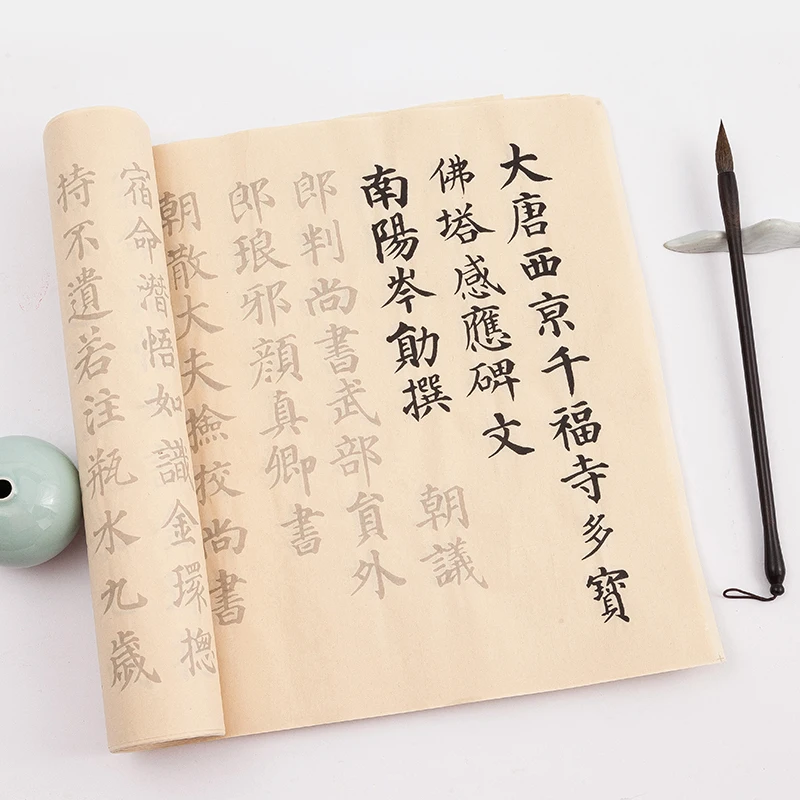 大唐西京千福寺多寶
佛塔感應碑文
南陽岑勛撰 朝議
郎判尚書武部員外
郎琅邪顏真卿書
朝散大夫撿校尚書
宿命潛悟如識金環摠
持不遺若注瓶水九歲